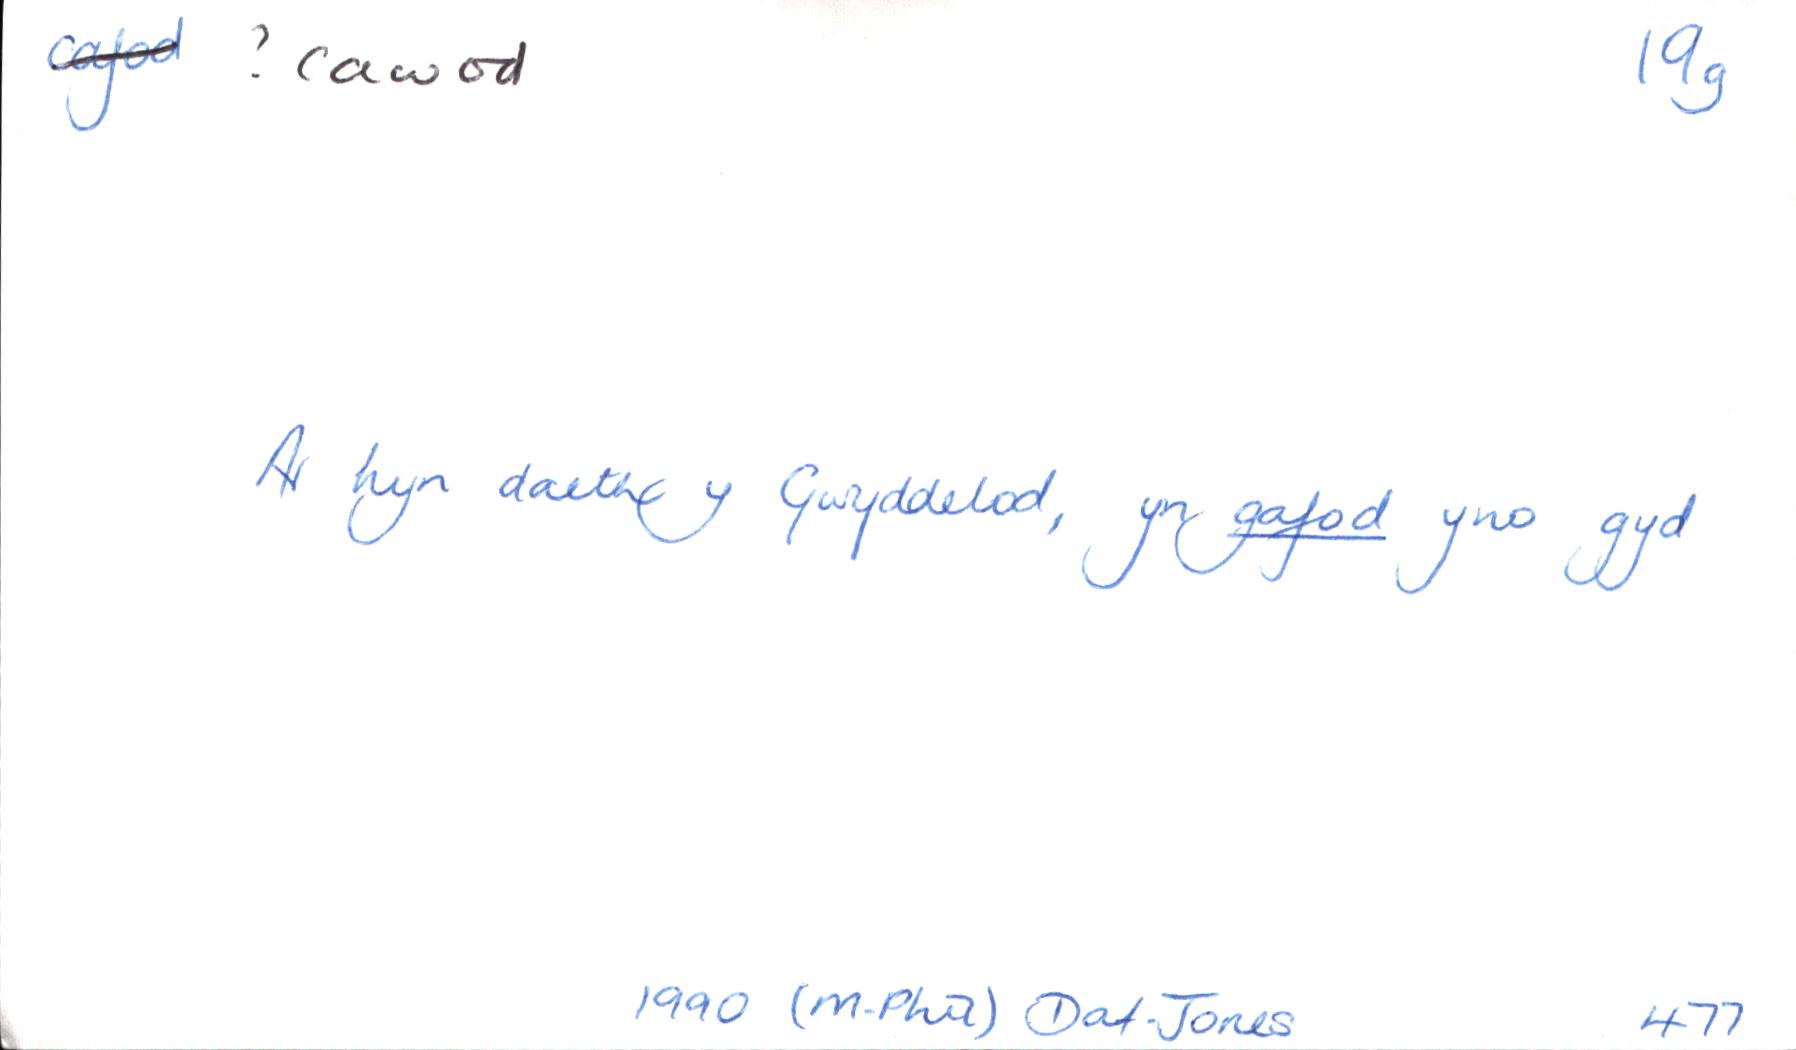 cafod ? cawod 19g
Ar hyn daethe y Gwyddelod, yn gafod yno gyd
1990 (M-Phil) Daf-Jones 477